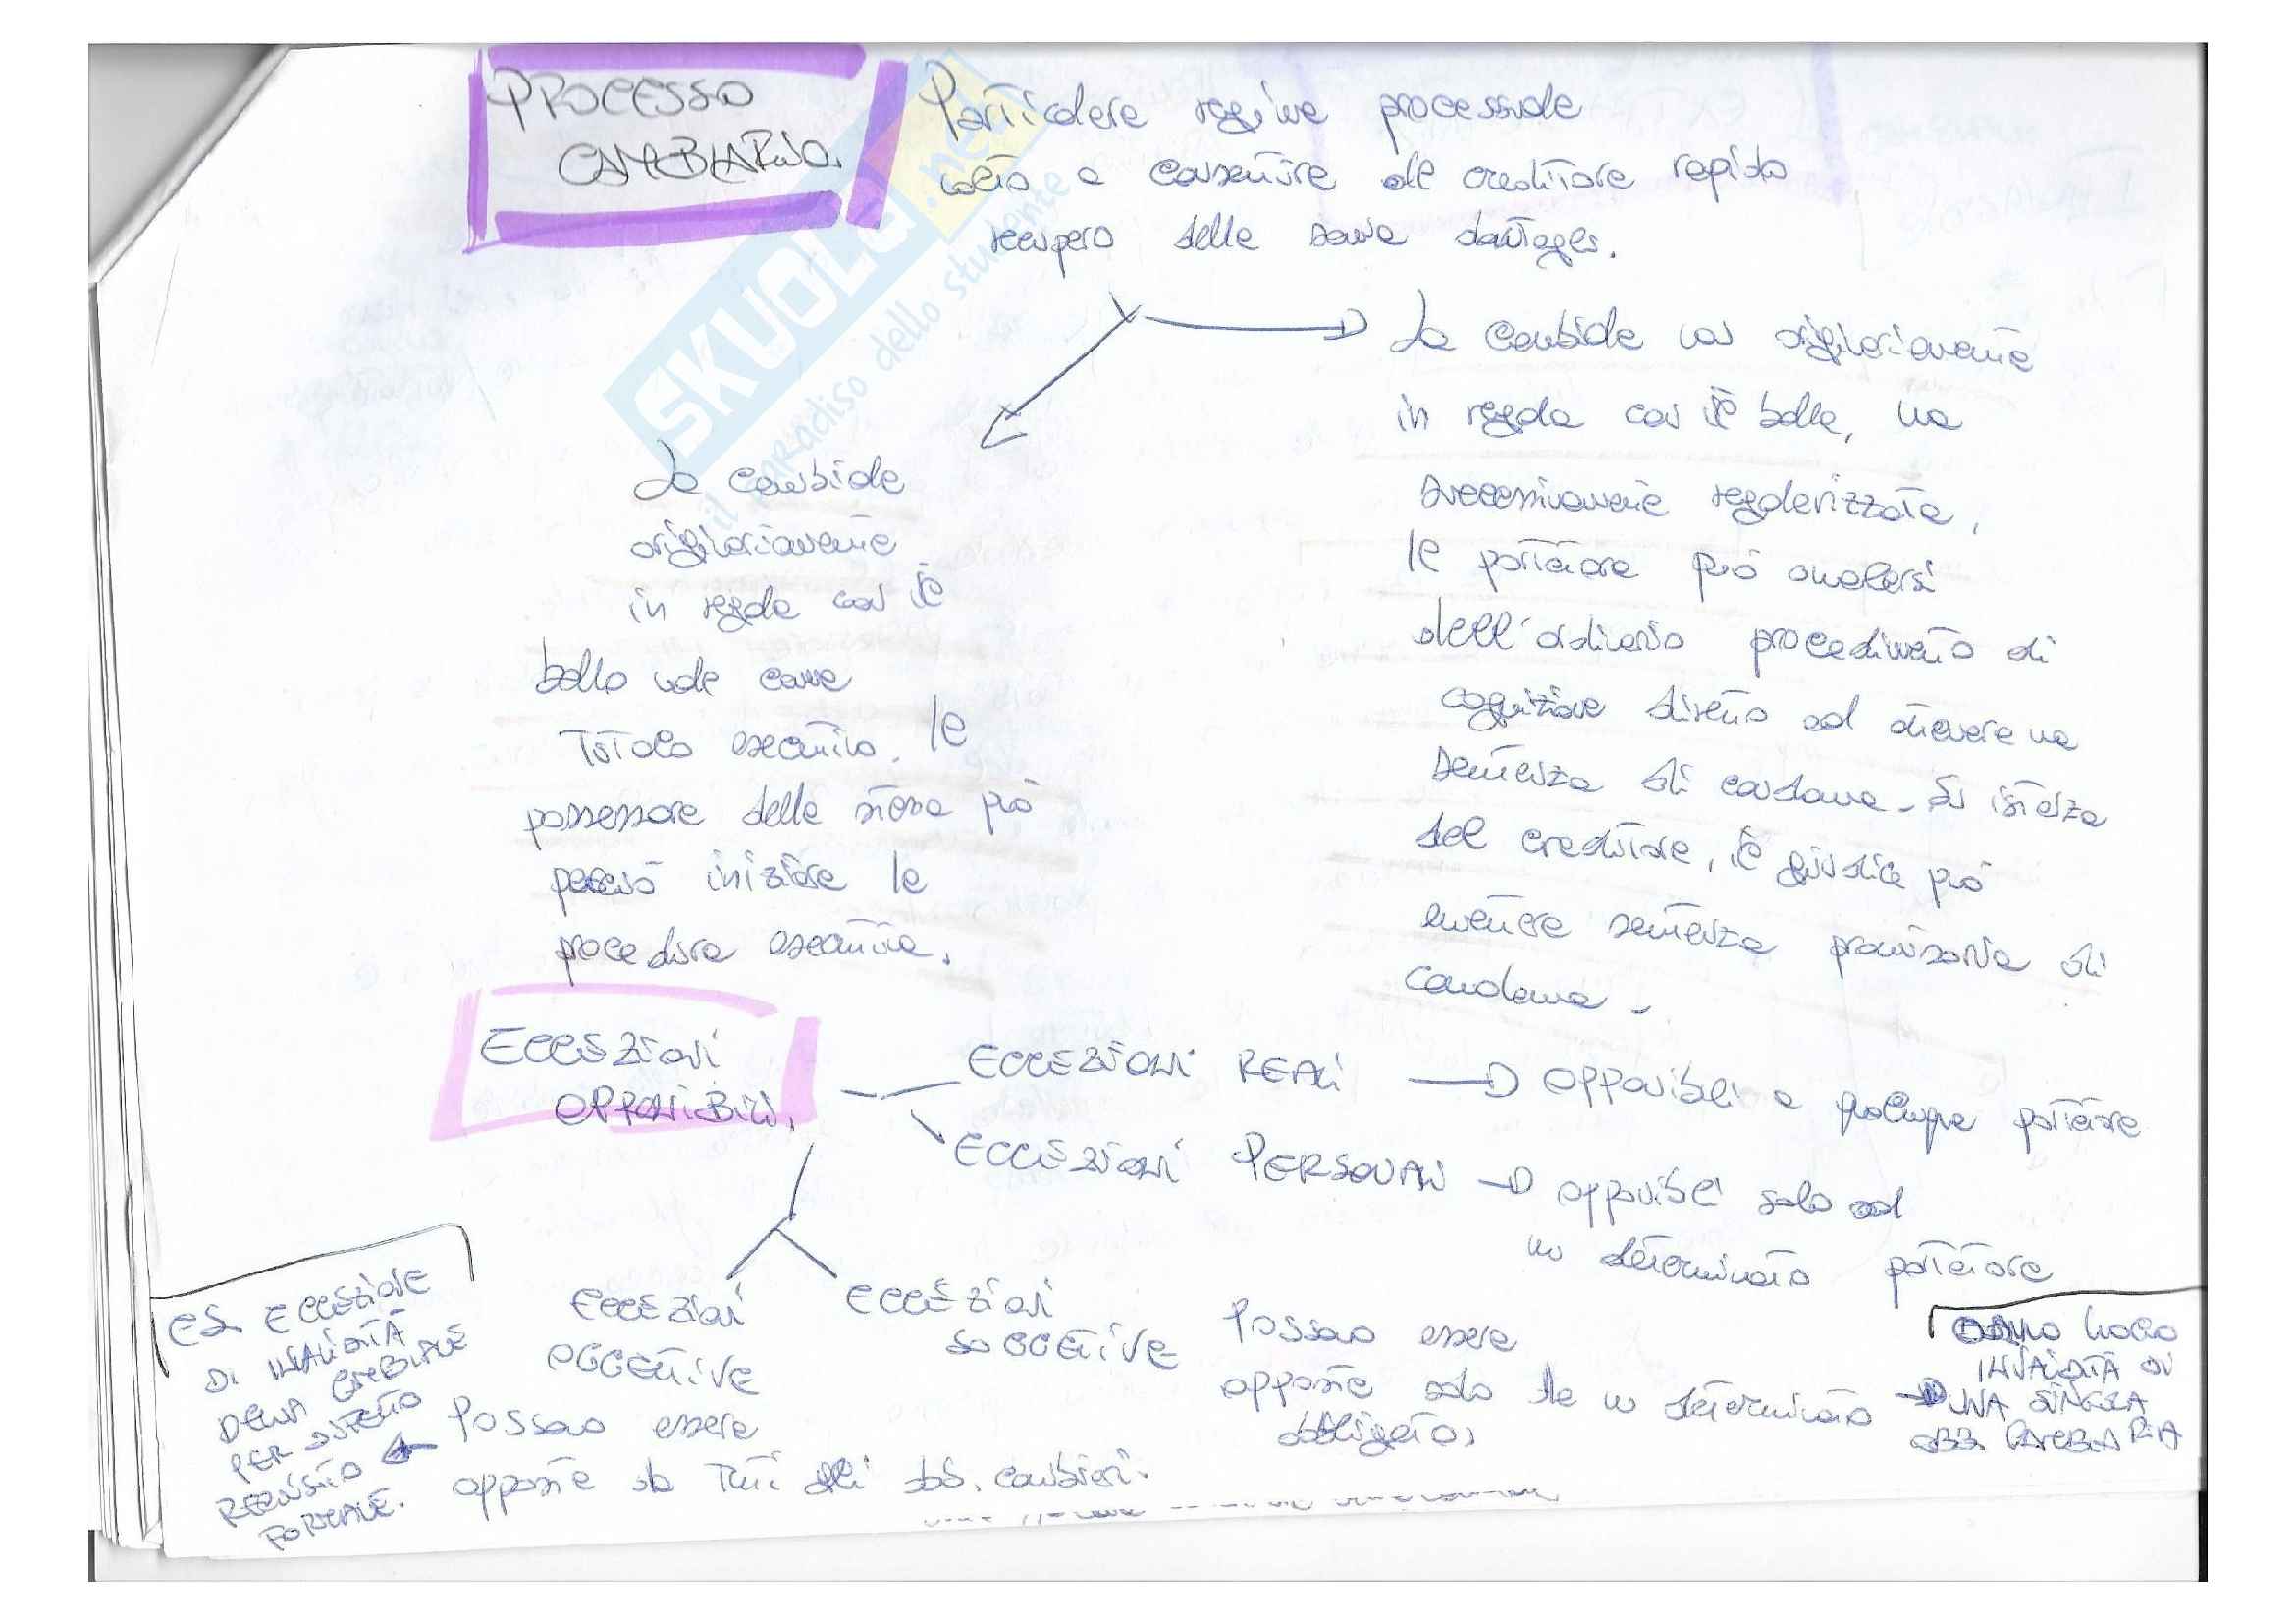 PROCESSO
CAMBIARIO.
Particolare regime processuale
volto a consentire al creditore rapido
recupero della somma cartolare.
La cambiale
originariamente
in regola con il
bollo vale come
titolo esecutivo. Il
possessore della stessa può
perciò iniziare la
procedura esecutiva.
La cambiale non originariamente
in regola con il bollo, ma
successivamente regolarizzata,
il portatore può avvalersi
dell'ordinario procedimento di
cognizione diretto ad ottenere una
sentenza di condanna. Su istanza
del creditore, il giudice può
emettere sentenza provvisoria di
condanna.
ECCEZIONI
OPPONIBILI.
ECCEZIONI REALI → opponibili a qualunque portatore
ECCEZIONI PERSONALI → opponibili solo ad
un determinato portatore
ECCEZIONI
OGGETTIVE
Possono essere
opposte da tutti gli obb. cambiari.
ES ECCEZIONE
DI INVALIDITÀ
DELLA CAMBIALE
PER DIFETTO
REQUISITO
FORMALE.
ECCEZIONI
SOGGETTIVE
Possono essere
opposte solo da un determinato
obbligato,
DANNO LUOGO
INVALIDITÀ DI
UNA SINGOLA
OBB. CAMBIARIA
SKUOLA.net
il paradiso dello studente